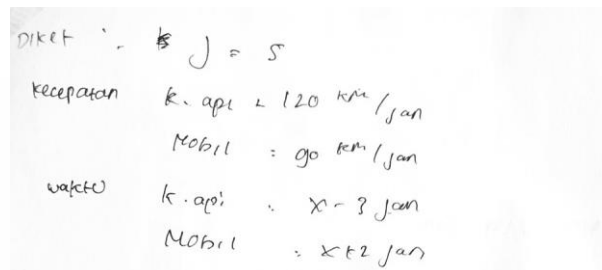 Diket : J = S
kecepatan k. api = 120 km/jam
Mobil : 90 km/jam
waktu k. api : x - 3 jam
Mobil : x + 2 jam